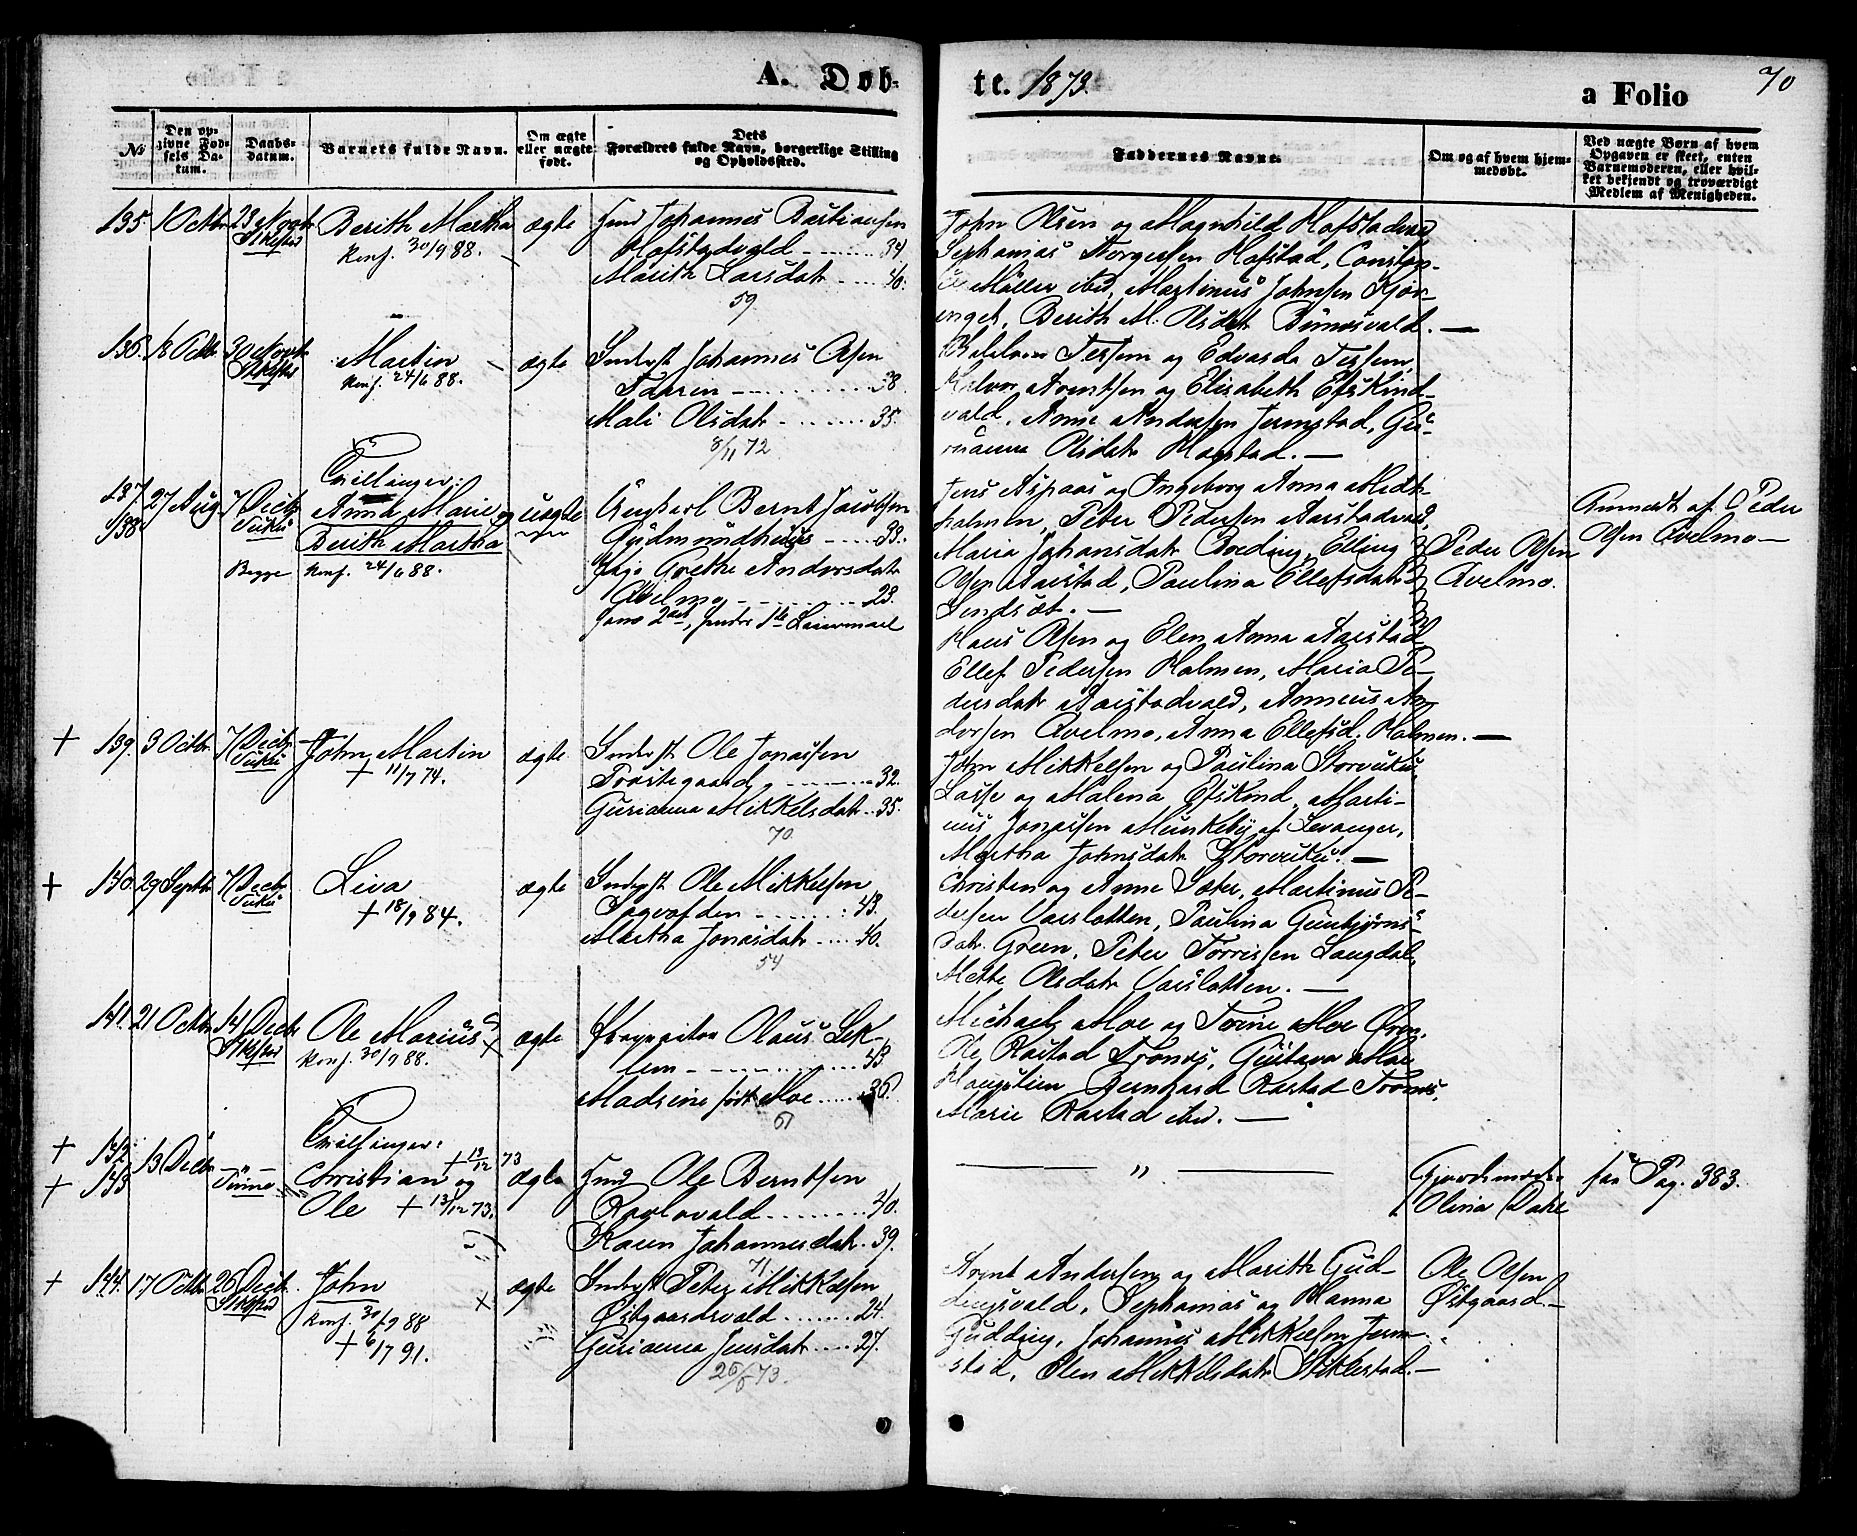 A. Døb-
te. 1873.
a Folio
70
No
Den op-
givne Fød-
sels Da-
tum.
Daabs-
datum.
Barnets fulde Navn.
Om ægte
eller uægte
født.
Dets
Forældres fulde Navn, borgerlige Stilling
og Opholdssted.
Faddernes Navne.
Om og af hvem hjem-
medøbt.
Ved uægte Børn af hvem
Opgaven er skeet, enten
Barnemoderen, eller hvil-
ket bekjendt og troværdigt
Medlem af Menigheden.
135. 1 Octbr 23 Novbr
Stiklestad
Berith Martha
Konf. 30/9 88.
ægte
Hmd Johannes Bastiansen
Hofstadvald 34.
Marith Larsdatr 40.
59
John Olsen og Magnhild Hofstadvald,
Sephanias Torgersen Hofstad,
Møller ibid, Martinus Johnsen Kjær-
enget, Berith M. Olsdatr
136. 18 Octbr 30 Novbr
Martin
Konf. 24/6 88.
ægte
Indrst Johannes Olsen
Faaren 38.
Mali Olsdatr 35.
8/11 72
Tessem og Edvarda Tessem,
Halvor Arentsen og Elisabeth Efskind-
vald, Anne Andersen Jermstad, Gu-
rianna Olsdatr Hagstad.
137.
138. 27 Aug 7 Decbr
Begge
Tvillinger:
Anna Marie og
Berith Martha
Konf. 24/6 88.
uægte
Ungkarl Bernt Jacobsen
Gudmundhuus 33.
Pige Grethe Andersdatr
Avelmo 23.
hans 2det, hendes 1ste Leiermaal
Jens Aspaas og Ingeborg Anna Midt-
holmen, Peter Pedersen Aarstadvald,
Maria Johansdatr Breding, Elling
Olsen Aarstad, Paulina Ellefsdatr
Sendsæt.
Hans Olsen og Elen Anna Aarstad
Ellef Pedersen Holmen, Maria Pe-
dersdatr Aarstadvald, Anneus An-
dersen Avelmo, Anna Ellefsd. Holmen.
Peder Olsen
Avelmo.
Anmeldt af Peder
Olsen Avelmo
+ 139. 3 Octbr 7 Decbr
John Martin
+ 11/7 74.
ægte
Indrst Ole Jonassen
Trøstegaard 32.
Gurianna Mikkelsdatr 35.
70.
John Mikkelsen og Paulina Storvuku,
Lasse og Malena Efskind, Marti-
nus Jonassen Munkeby af Levanger,
Martha Johnsdatr Storvuku.
+ 140. 29 Septbr 7 Decbr
Liva
+ 18/9 84.
ægte
Indrst Ole Mikkelsen
Sagvolden 43.
Martha Jonasdatr 40.
54
Christen og Anne Sæter, Martinus Pe-
dersen Varslotten, Paulina Gunbjørns-
datr Green, Peter Torrissen Langdal,
Mette Olsdatr Varslotten.
141. 21 Octbr 14 Decbr
Stiklestad
Ole Marius
Konf. 30/9 88.
ægte
Olaus Lek-
lem 43
Madseine født Moe 36.
61
Michael Moe og Torine Moe
Ole Rostad Tronæs, Gustava Moe
Haugslien Bernhard Rostad Tronæs,
Marie Rostad ibid.
+ 142.
+ 143 13 Decbr
Tvillinger:
Christian og + 13/12 73
Ole + 13/12 73.
ægte
Hmd Ole Berntsen
40.
Karen Johannesdatr 39.
71
Olina Dahl
saa Pag. 383.
+ 144. 17 Octbr 26 Decbr
Stiklestad
John
Konf. 30/9 88
+ 6/7 91.
ægte
Indrst Peter Mikkelsen
Østgaardsvald 24.
Gurianna Jensdatr 27.
Arent Andersen og Marith Gud-
dingsvald, Sephanias og Hanna
Gudding, Johannes Mikkelsen Jerm-
stad, Elen Mikkelsdatr Stiklestad.
Ole Olsen
Østgaard.